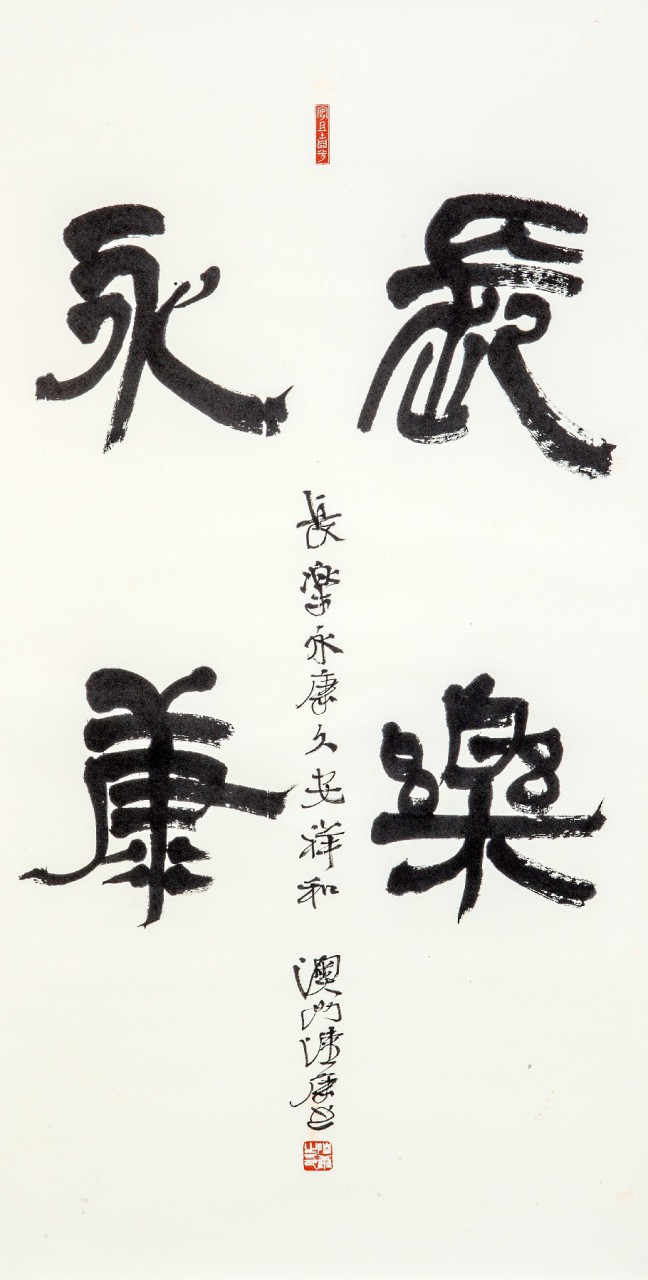 長樂
永康
長樂永康久安祥和
澳門